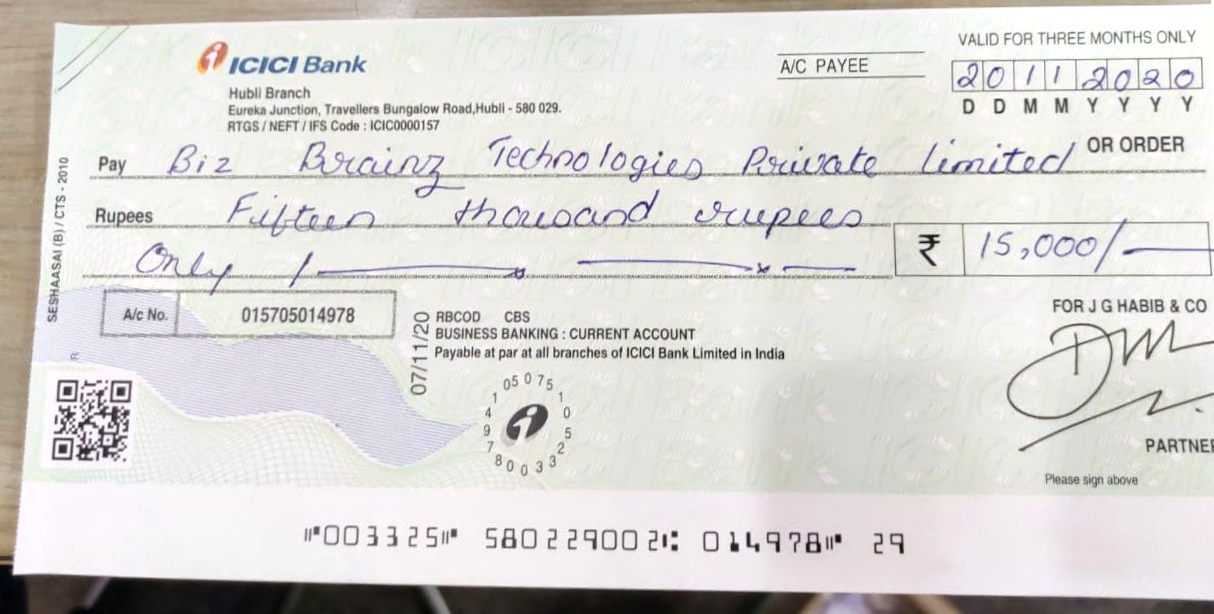 ICICI Bank
Hubli Branch
Eureka Junction, Travellers Bungalow Road,Hubli - 580 029.
RTGS / NEFT / IFS Code : ICIC0000157
A/C PAYEE
VALID FOR THREE MONTHS ONLY
20112020
D D M M Y Y Y Y
Pay Biz Brainz Technologies Private Limited OR ORDER
Rupees Fifteen thousand rupees
Only /
₹ 15,000/-
A/c No. 015705014978
FOR J G HABIB & CO
RBCOD CBS
BUSINESS BANKING : CURRENT ACCOUNT
Payable at par at all branches of ICICI Bank Limited in India
07/11/20
SESHAASAI (B) / CTS - 2010
PARTNER
Please sign above
⑈003325⑈ 580229002⑆ 014978⑈ 29